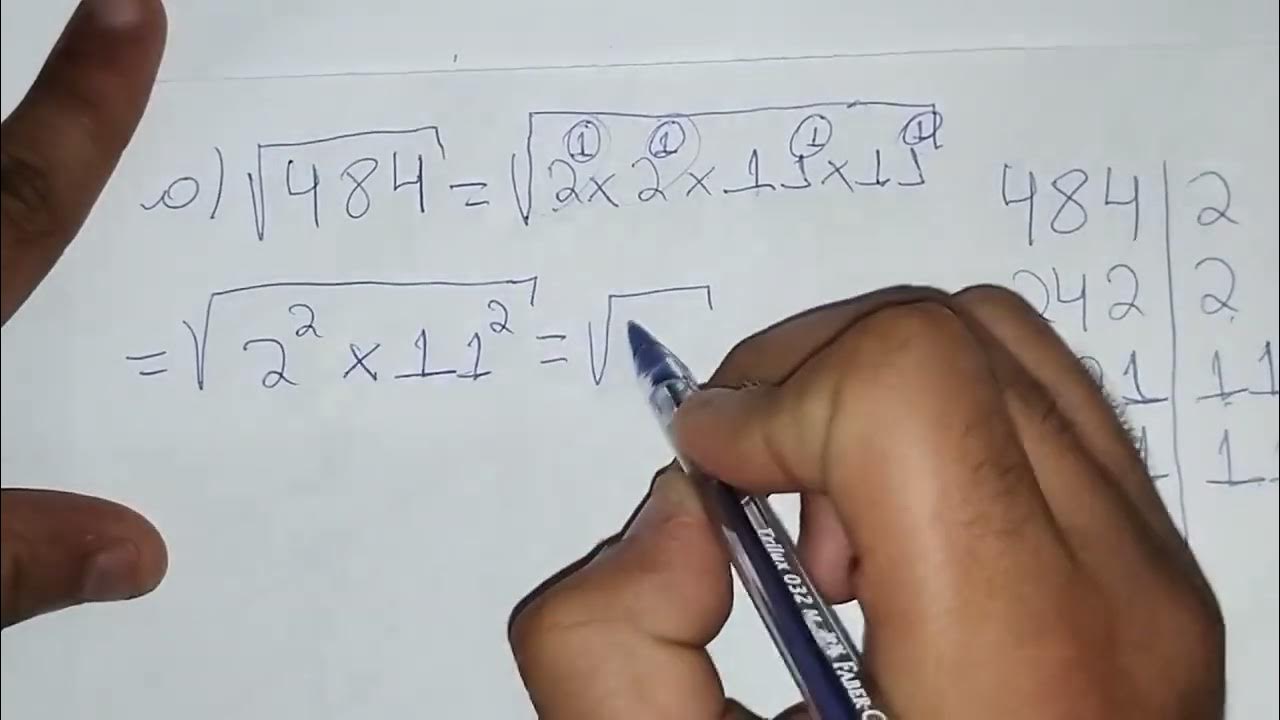 o) √484 = √2¹ × 2¹ × 11¹ × 11¹
= √2² × 11² = √
484 | 2
242 | 2
121 | 11
11 | 11
Trilux 032 M
FABER-C